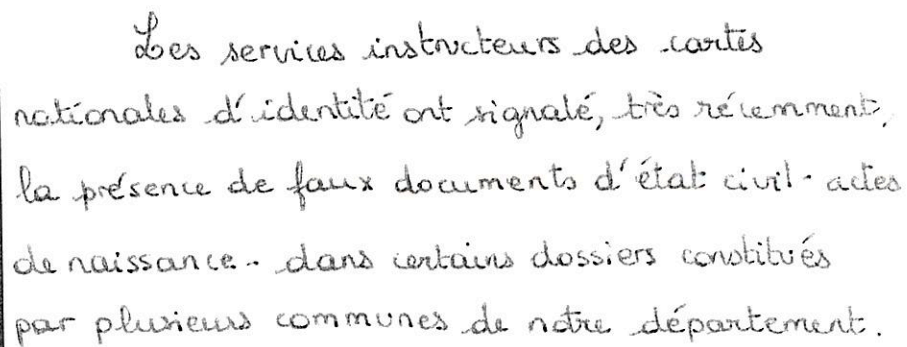 Les services instructeurs des cartes
nationales d'identité ont signalé, très récemment,
la présence de faux documents d'état civil - actes
de naissance - dans certains dossiers constitués
par plusieurs communes de notre département.